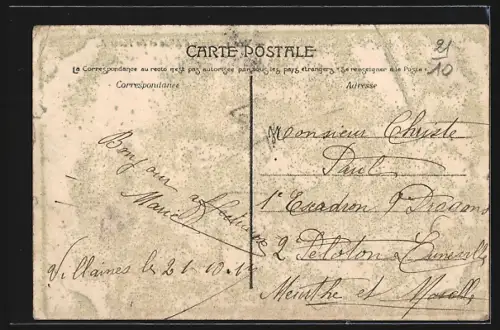 CARTE POSTALE
La Correspondance au recto n'est pas autorisée par tous les pays étrangers (Se renseigner à la Poste)
Correspondance
Adresse
21
10
Bonjour affectueux
Marie
Villaines les 21.10.
Monsieur Christe
Paul
1e Escadron 9 Dragons
2 Peloton Luneville
Meurthe et Moselle